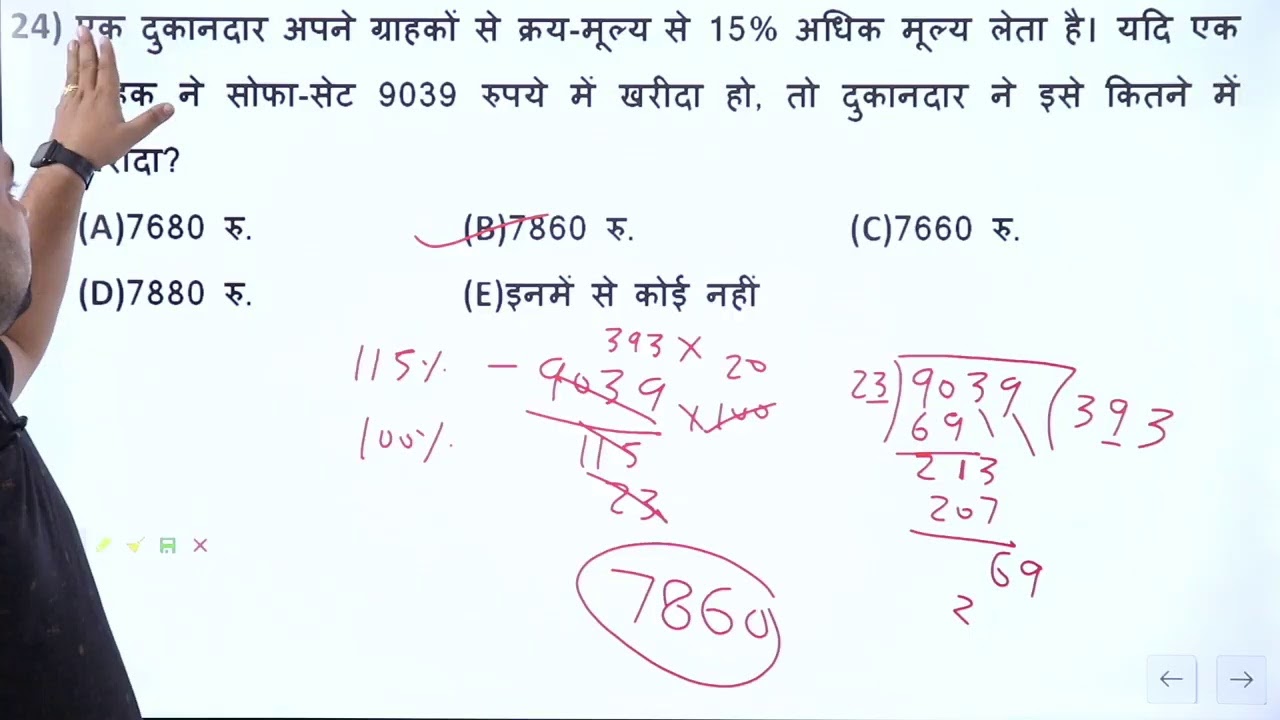 24) एक दुकानदार अपने ग्राहकों से क्रय-मूल्य से 15% अधिक मूल्य लेता है। यदि एक
ने सोफा-सेट 9039 रुपये में खरीदा हो, तो दुकानदार ने इसे कितने में
(A)7680 रु. (B)7860 रु. (C)7660 रु.
(D)7880 रु. (E)इनमें से कोई नहीं
393 × 20
115% – 9039 × 100
100% 115
23
7860
23) 9039 ( 393
69
213
207
69
2